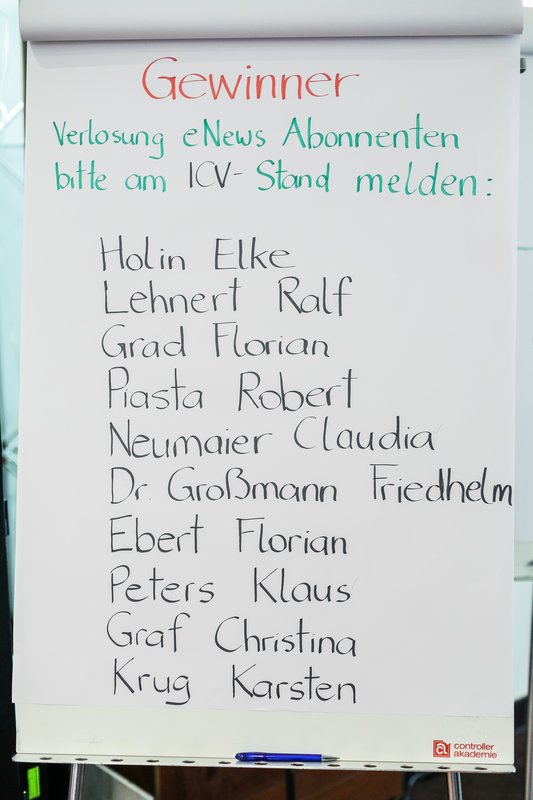 Gewinner
Verlosung eNews Abonnenten
bitte am ICV-Stand melden:
Holin Elke
Lehnert Ralf
Grad Florian
Piasta Robert
Neumaier Claudia
Dr. Großmann Friedhelm
Ebert Florian
Peters Klaus
Graf Christina
Krug Karsten
controller
akademie